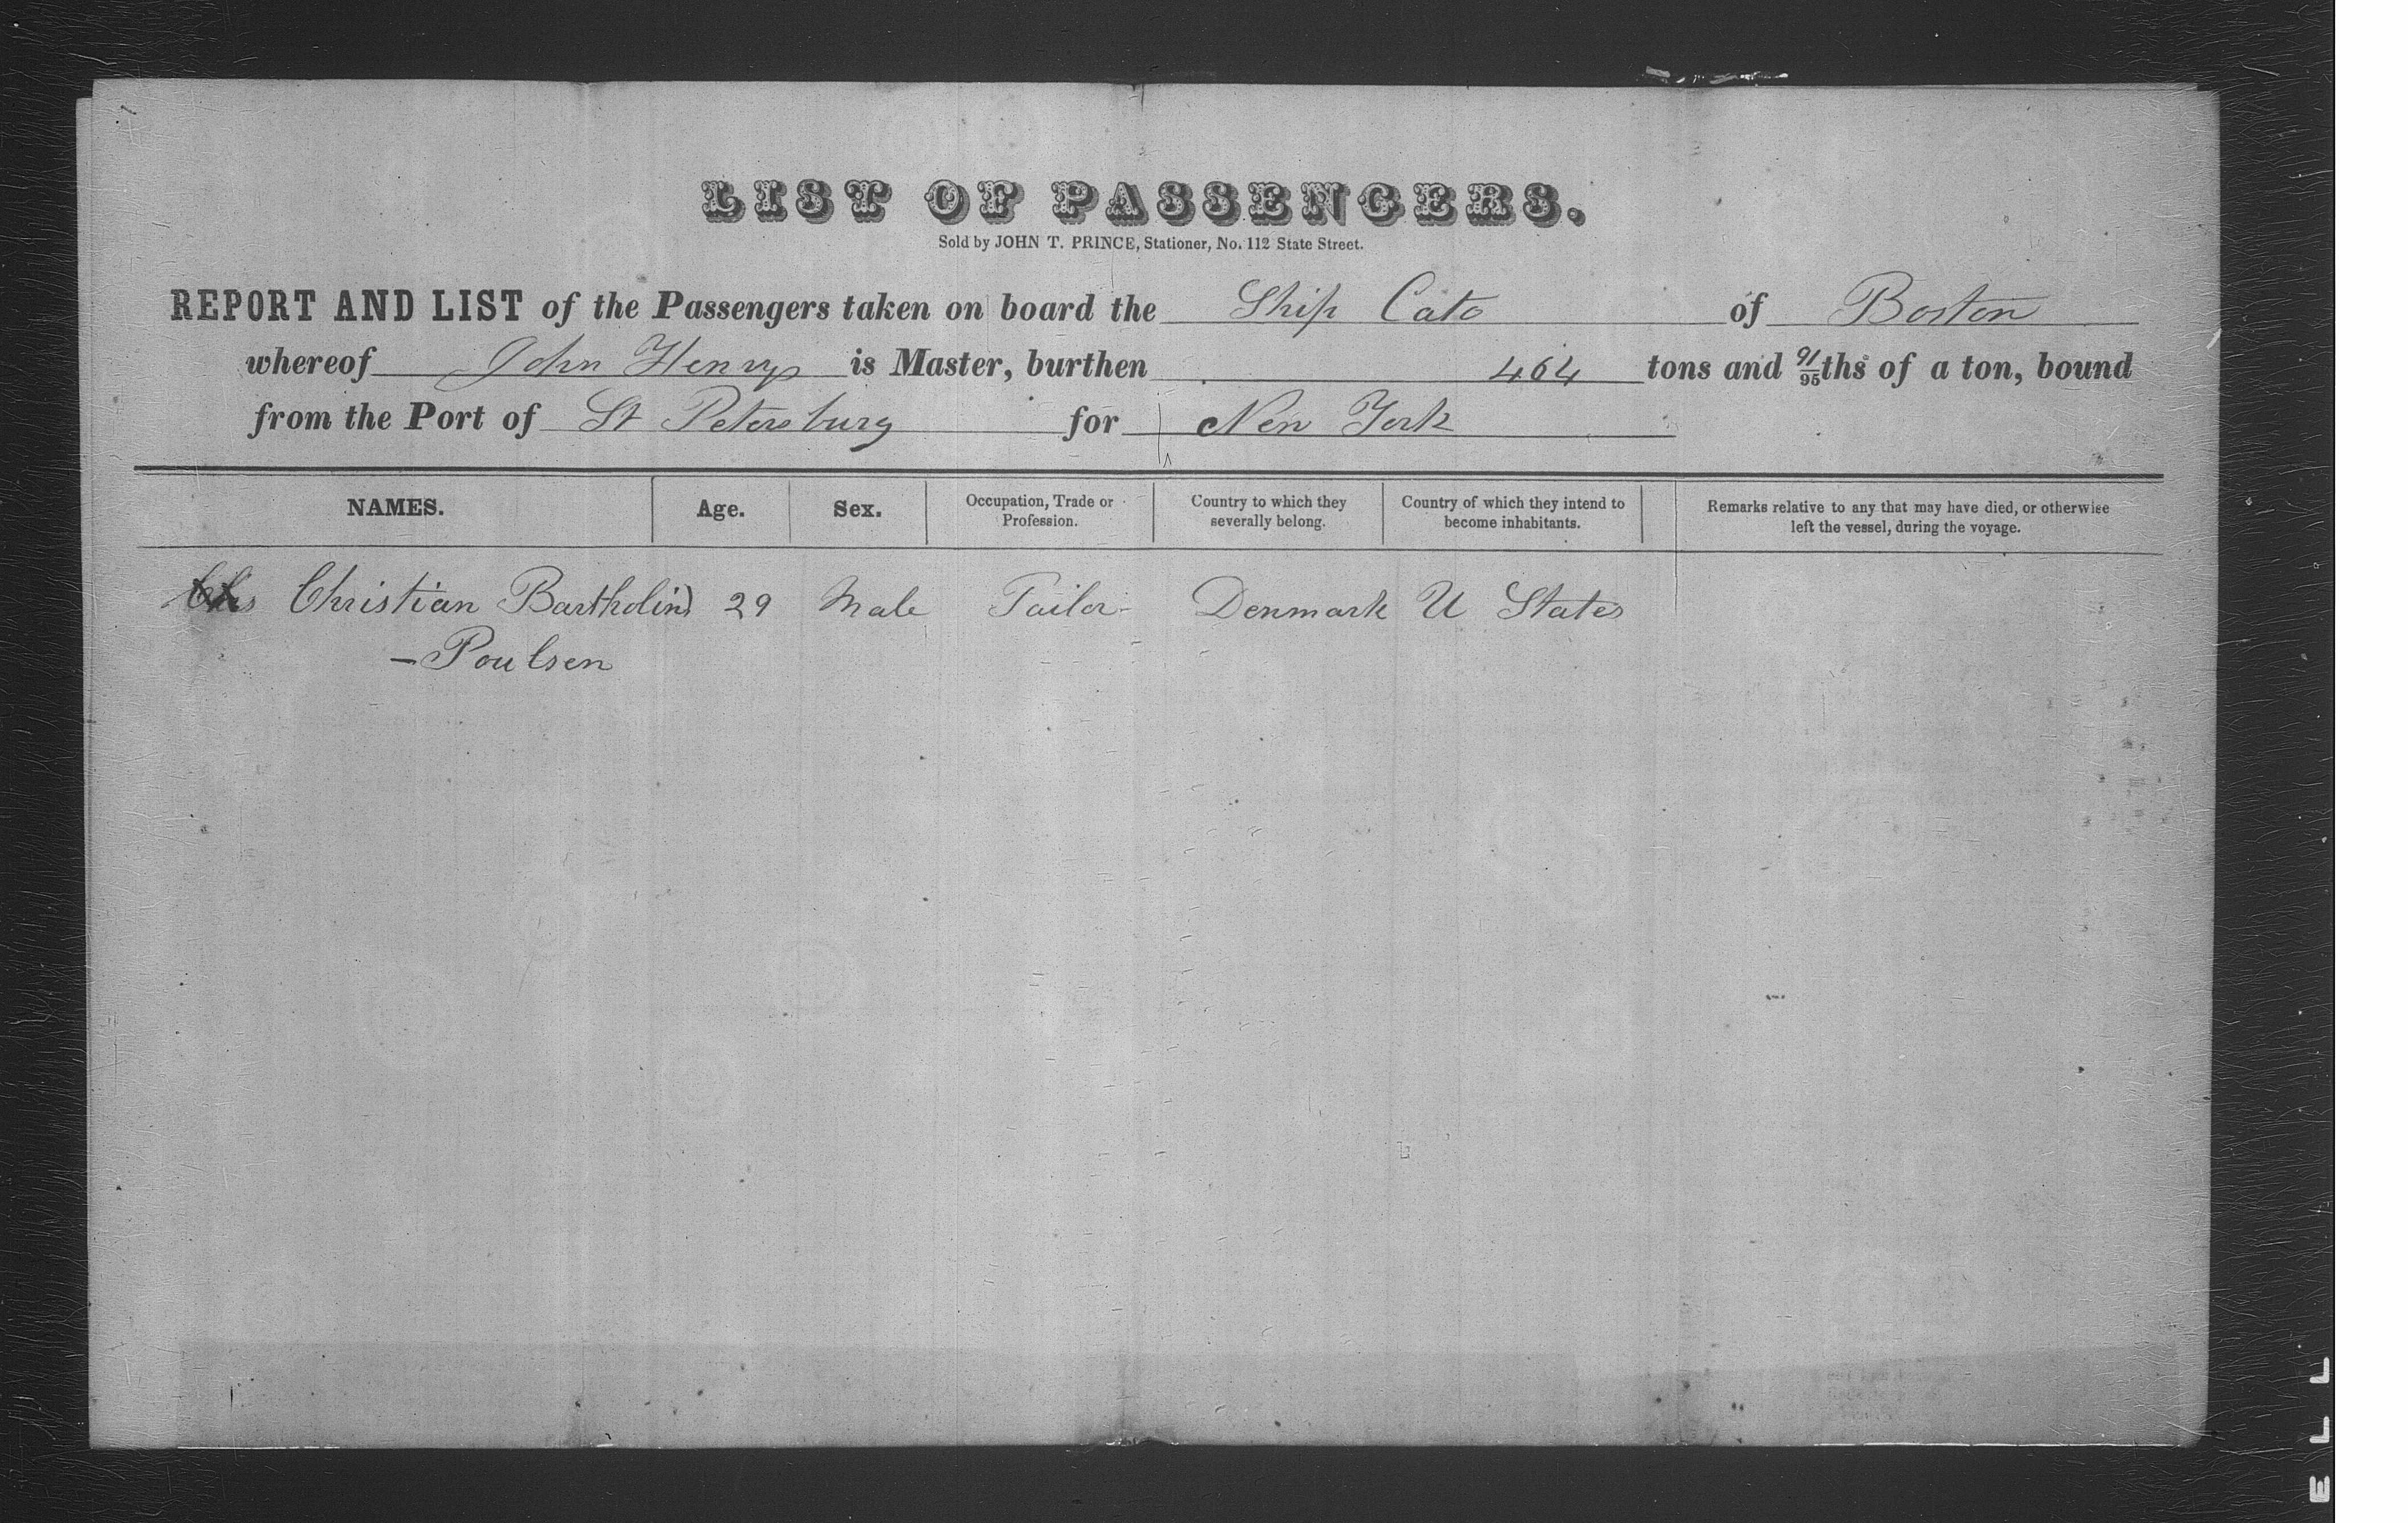 LIST OF PASSENGERS.
Sold by JOHN T. PRINCE, Stationer, No. 112 State Street.
REPORT AND LIST of the Passengers taken on board the Ship Cato of Boston
whereof John Henry is Master, burthen 464 tons and 91/95ths of a ton, bound
from the Port of St Petersburg for New York
NAMES. Age. Sex. Occupation, Trade or Profession. Country to which they severally belong. Country of which they intend to become inhabitants. Remarks relative to any that may have died, or otherwise left the vessel, during the voyage.
Christian Bartholin 29 Male Tailor Denmark U States
- Poulsen
E L L